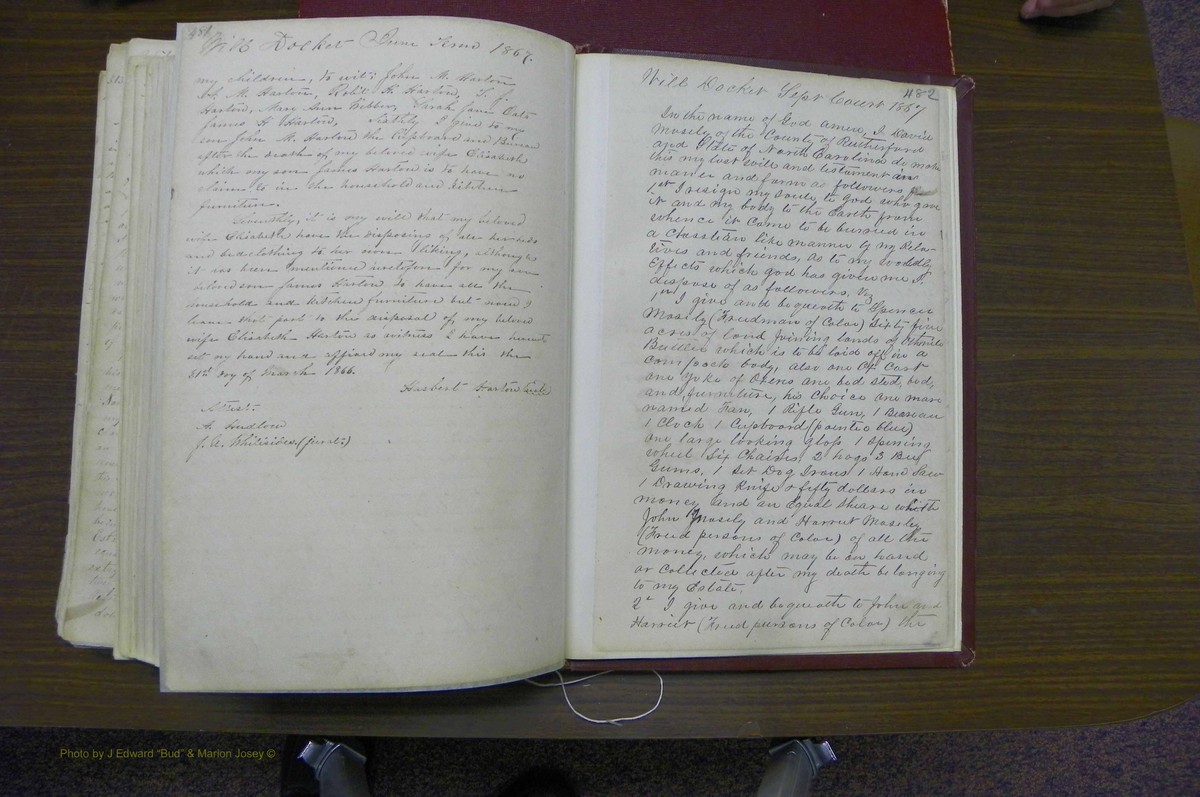 481
Will Docket June Term 1867.
my children, to wit: John M. Harton
A. M. Harton, Robt. H. Harton, S. J.
Harton, Mary Ann Webber, Sarah Jane Oats
James H. Harton, I give to my
son John M. Harton the Cupboard and Bureau
after the death of my beloved wife Elizabeth
which my son James Harton is to have no
claims to in the household and kitchen
furniture.
it is my will that my beloved
wife Elizabeth have the disposing of all her beds
and bedclothing to her own liking, although
it has been mentioned heretofore for my
beloved son James Harton to have all the
household and kitchen furniture but now I
leave that part to the disposal of my beloved
wife Elizabeth Harton as witness I have hereunto
set my hand and affixed my seal this the
31st day of March 1866.
Harton (seal)
Attest:
A.
J. A. Whitesides (Jurat)
482
Will Docket Sept Court 1867
In the name of God Amen, I David
Mosely of the County of Rutherford
and State of North Carolina do make
this my last will and testament in
maner and form as followers
1st I resign my soul to God who gave
it and my body to the Earth from
whence it came to be burried in
a Chasstian like manner by my Rela-
tives and friends, as to my worldly
Effects which god has given me I
dispose of as followers, Viz
1st I give and bequeath to Spencer
Mosely (Freedman of Color) Sixty five
acres of land joining lands of
Butler which is to be laid off in a
compack body, also one Ox Cart
one Yoke of Oxens one bed sted, bed,
and furniture, his choice one mare
named Fan, 1 Rifle Gun, 1 Beaurau
1 Clock 1 Cupboard (painted blue)
one large looking glass 1 Spining
wheel Six Chairs 2 hogs 3 Bee
Gums, 1 Set Dog Irons 1 Hand Saw
1 Drawing knife & fifty dollars in
money and an Equal Share with
John Mosely and Harriet Mosely
(Freed persons of Color) of all the
money, which may be on hand
or collected after my death belonging
to my Estate.
2d I give and bequeath to John and
Harriet (Freed persons of Color) the
Photo by J Edward "Bud" & Marion Josey ©